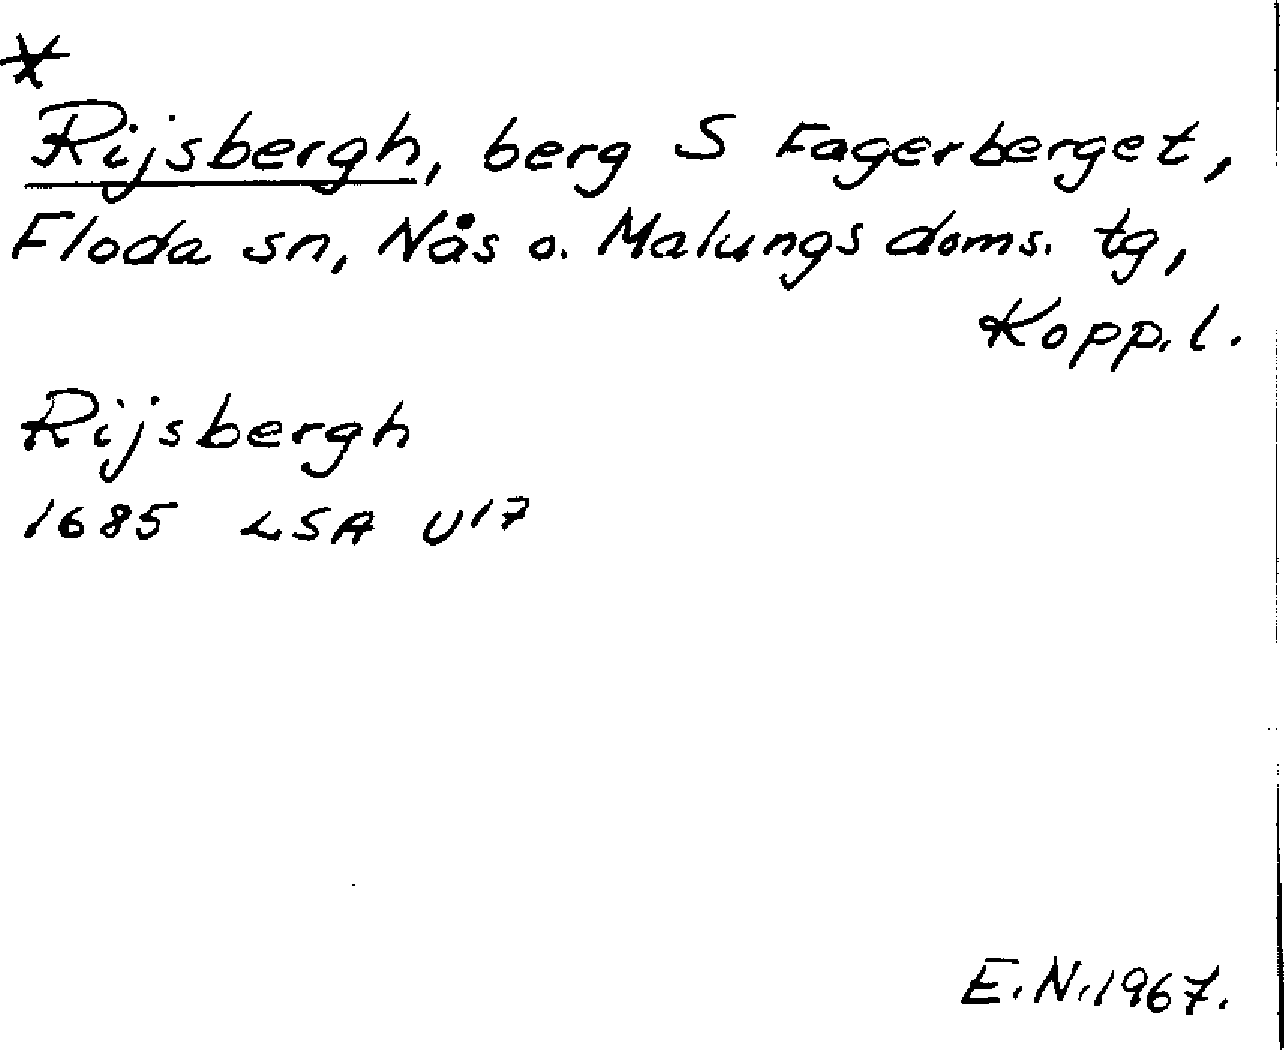 *
Rijsbergh, berg S Fagerberget,
Floda sn, Nås o. Malungs doms. tg,
Kopp. l.
Rijsbergh
1685 LSA U17
E.N. 1967.